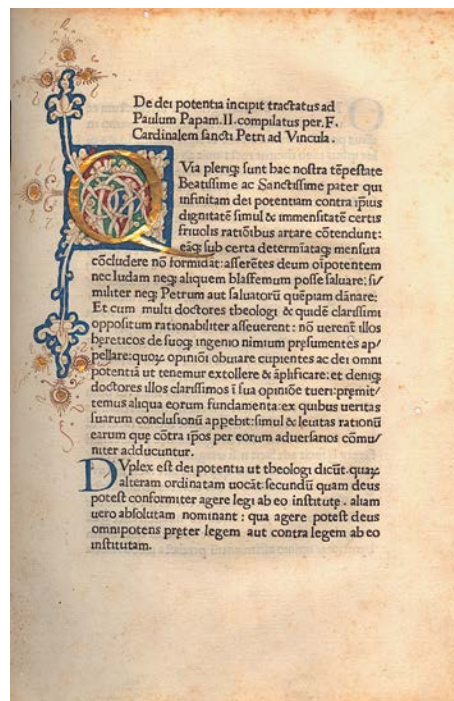 De dei potentia incipit tractatus ad
Paulum Papam.II.compilatus per.F.
Cardinalem sancti Petri ad Vincula.
QVia pleriq; sunt hac nostra tēpestate
Beatissime ac Sanctissime pater qui
infinitam dei potentiam contra ip̄ius
dignitatē simul & immensitatē certis
friuolis ratiōibus artare cōtendunt:
eāq; sub certa determīataq; mensura
cōcludere nō formidāt:asserētes deum oīpotentem
nec Iudam neq; aliquem blasfemum posse saluare: si/
militer neq; Petrum aut saluatorū quēpiam dānare:
Et cum multi doctores theologi & quidē clarissimi
oppositum rationabiliter asseuerent: nō uerent illos
hereticos de suoq; ingenio nimium presumentes ap/
pellare:quoꝝ opiniōi obuiare cupientes ac dei omni
potentiā ut tenemur extollere & āplificare:et deniq;
doctores illos clarissimos ī sua opiniōe tueri:premit/
temus aliqua eorum fundamenta:ex quibus ueritas
suarum conclusionū appebit:simul & leuitas rationū
earum que cōtra ip̄os per eorum aduersarios cōmu/
niter adducuntur.
DVplex est dei potentia ut theologi dicūt.quaꝝ
alteram ordinatam uocāt:secundū quam deus
potest conformiter agere legi ab eo institutę. aliam
uero absolutam nominant : qua agere potest deus
omnipotens pręter legem aut contra legem ab eo
institutam.